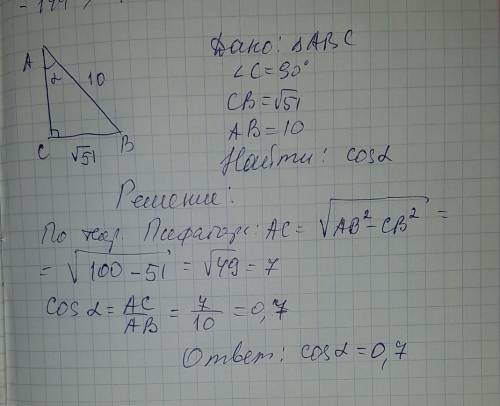 A
α
10
C
√51
B
Дано: ΔABC
∠C=90°
CB=√51
AB=10
Найти: cosα
Решение:
По теор. Пифагора: AC = √(AB²-CB²) =
= √(100-51) = √49 = 7
cosα = AC/AB = 7/10 = 0,7
Ответ: cosα=0,7